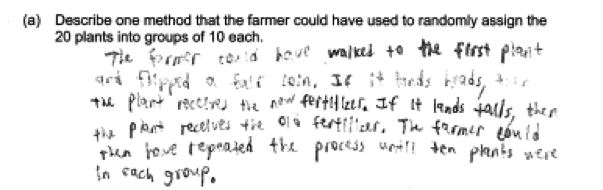 (a) Describe one method that the farmer could have used to randomly assign the
20 plants into groups of 10 each.
The farmer could have walked to the first plant
and flipped a fair coin. If it lands heads, then
the plant receives the new fertilizer. If it lands tails, then
the plant receives the old fertilizer. The farmer could
then have repeated the process until ten plants were
in each group.